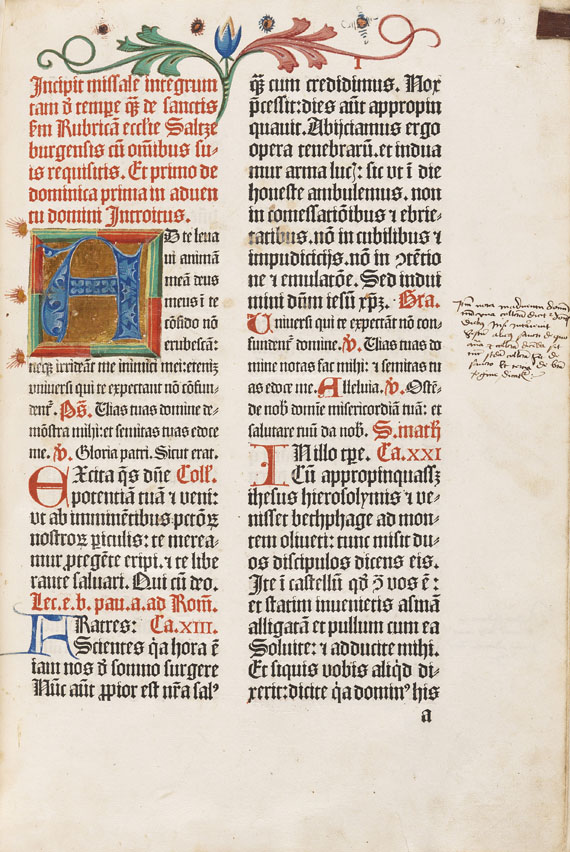 I
Incipit missale integrum
tam ď tempe q̄ȝ de sanctis
ẜm Rubricā ecclīe Saltze
burgensis cū om̄ibus su-
is requisitis. Et primo de
dominica prima in aduen
tu domini Introitus.
AD te leua
ui animā
meā deus
meus ī te
cōfido nō
erubescā:
neqȝ irrideāt me inimici mei: etenim
vniuersi qui te expectant nō cōfun-
dent᷑. Ps̄. Uias tuas domine de-
mōstra mihi: et semitas tuas edoce
me. v̄. Gloria patri. Sicut erat.
EXcita q̄s dn̄e Coll̄.
potentiā tuā ⁊ veni:
vt ab imminētibus pctōꝝ
nostroꝝ ꝑiculis: te merea-
mur ꝓtegēte eripi. ⁊ te libe
rante saluari. Qui cū deo.
Lec. e. b. pau. a. ad Rom̄.
FRatres: Ca. XIII.
Scientes q̇a hora ē
iam nos ď somno surgere
Nūc aūt ꝓpior est nr̄a salꝰ
q̄ȝ cum credidimus. Nox
p̄cessit: dies aūt appropin
quauit. Abijciamus ergo
opera tenebrarū. et indua
mur arma lucꝭ: sic vt ī die
honeste ambulemus. non
in comessatiōibus ⁊ ebrie-
tatibus. nō in cubilibus ⁊
impudicicijs. nō in ↄtētio
ne ⁊ emulatōe. Sed indui
mini dūm iesū xp̄ȝ. Gra.
Uniuersi qui te expectāt nō con-
fundent᷑ domine. v̄. Uias tuas do
mine notas fac mihi: ⁊ semitas tu
as edoce me. Alleluia. v̄. Ostē-
de nob̄ domīe misericordiā tuā: et
salutare tuū da nob̄. S. math̄
INillo tp̄e. Ca. XXI
Cū appropinquassȝ
ihesus hierosolymis ⁊ ve-
nisset bethphage ad mon-
tem oliueti: tunc misit du-
os discipulos dicens eis.
Ite ī castellū qď ꝯ̄ vos ē:
et statim inuenietis asinā
alligatā et pullum cum ea
Soluite: ⁊ adducite mihi.
Et siquis vobis aliq̇d di-
xerit: dicite q̇a dominꝰ his
a